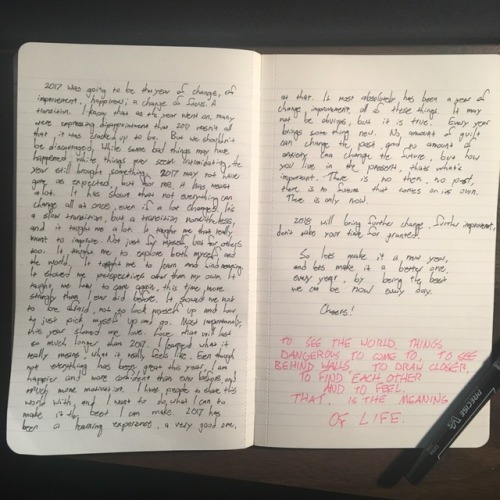 2017 was going to be the year of change, of
improvement, happiness; a change of focus. A
transition. I know that as the year went on, many
were expressing disappointment that 2017 wasn't all
that it was cracked up to be. But we shouldn't
be discouraged. While some bad things may have
happened, while things may seem the
year still brought something. 2017 may not have
gone as expected, but for me, it has meant
a lot. It has shown that not everything can
change all at once, even if a lot changed. It's
a slow transition, but a transition nonetheless,
and it taught me a lot. It taught me that I really
want to improve. Not just for myself, but for others
too. It taught me to explore both myself, and
the world. It taught me to learn and
It showed me perspectives other than my own. It
taught me how to care again, this time, more
strongly than I ever did before. It showed me not
to be afraid, not to lock myself up and how
to just pick myself up and go. Most importantly,
this year showed me love. Love that will last
so much longer than 2017. I learned what it
really means, what it really feels like. Even though
not everything has been great this year, I am
happier and more confident than ever before and
much more motivation. I have people to share this
world with, and I want to do what I can to
make it the best I can make. 2017 has
been a learning experience, a very good one,
at that. It most absolutely has been a year of
change, improvement, all of these things. It may
not be obvious, but it is true. Every year
brings something new. No amount of guilt
can change the past, and no amount of
anxiety can change the future, but how
you live in the present, that's what's
important. There is no then, no past,
there is no future that comes on its own.
There is only now.
2018 will bring further change, further improvement,
don't take your time for granted.
So lets make it a new year,
and lets make it a better one,
every year, by being the best
we can be now every day.
Cheers!
TO SEE THE WORLD, THINGS
DANGEROUS TO COME TO, TO SEE
BEHIND WALLS, TO DRAW CLOSER,
TO FIND EACH OTHER
AND TO FEEL.
THAT IS THE MEANING
OF LIFE.
PRECISE V5